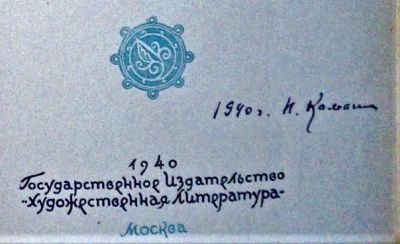 1940 г. Н.
1940
Государственное Издательство
-Художественная Литература-
Москва